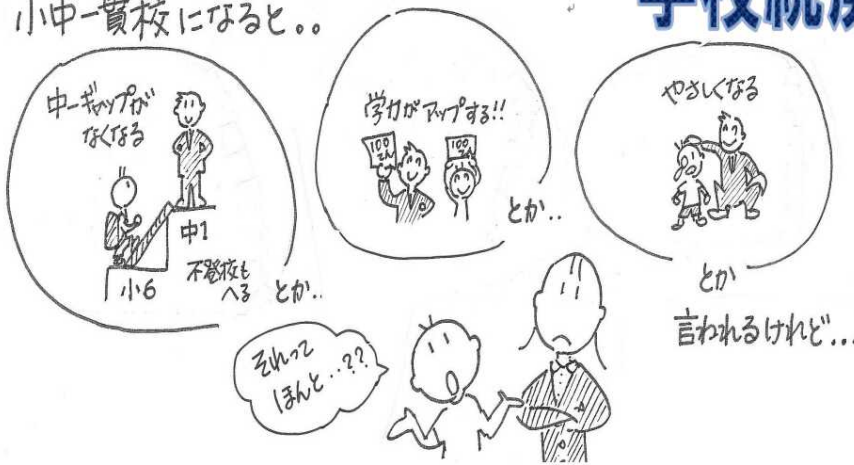 小中一貫校になると。。
中一ギャップが
なくなる
中1
小6
不登校も
へる
とか..
学力がアップする!!
100
てん
100
てん
とか..
やさしくなる
とか
言われるけれど...
それって
ほんと...??